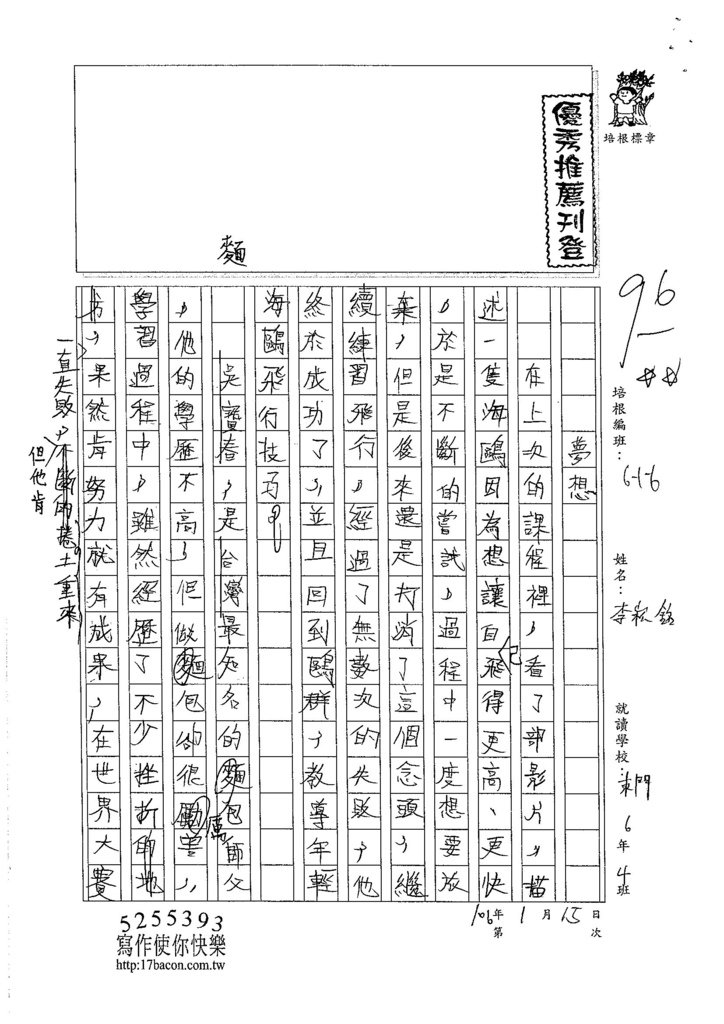 培根標章
優秀推薦刊登
96
培根編班：6-1-6
姓名：李
就讀學校：東門 6年4班
106年1月15日
第 次
夢想
在上次的課程裡，看了部影片，描
述一隻海鷗因為想讓自己飛得更高、更快
，於是不斷的嘗試，過程中一度想要放
棄，但是後來還是打消了這個念頭，繼
續練習飛行，經過了無數次的失敗，他
終於成功了，並且回到鷗群，教導年輕
海鷗飛行技巧。
吳寶春，是台灣最知名的麵包師父
，他的學歷不高，但做麵包卻很厲害，
學習過程中，雖然經歷了不少挫折的地
方，果然肯努力就有成果，在世界大賽
麵
一直失敗，但他肯不斷的捲土重來
5255393
寫作使你快樂
http:17bacon.com.tw